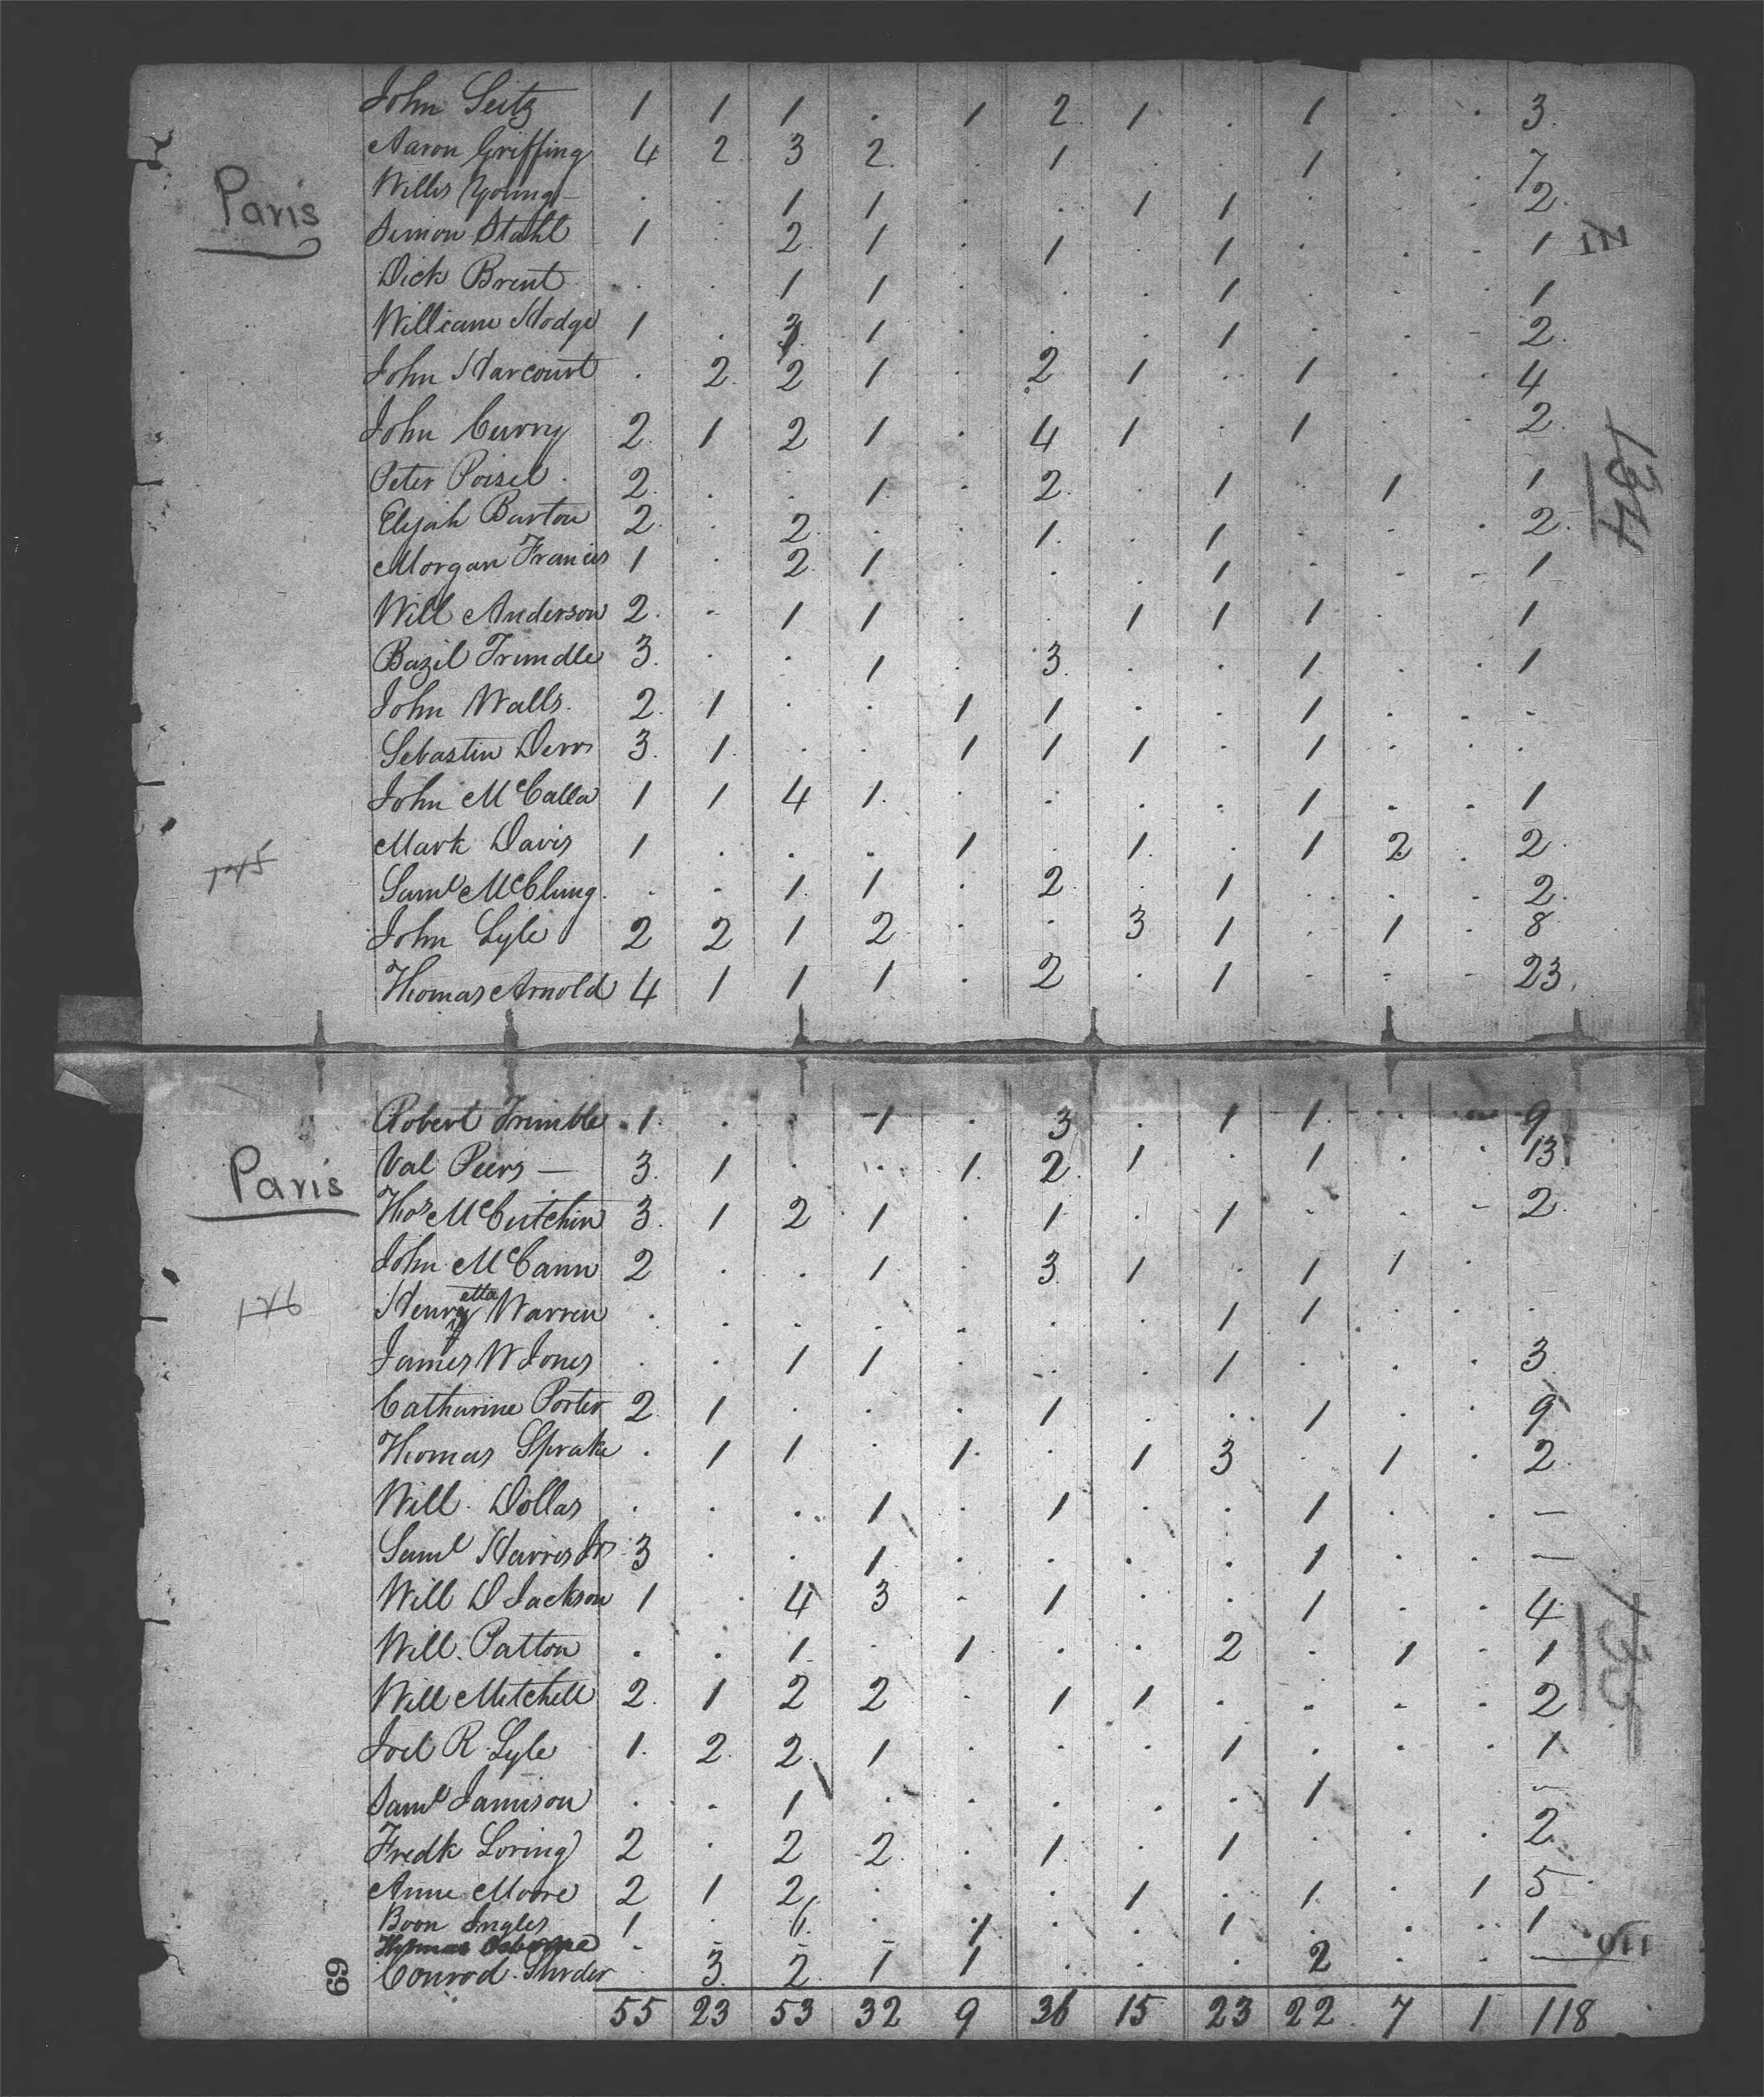 John Seitz 1 1 1 . 1 2 1 . 1 . . 3
Aaron Griffing 4 2 3 2 . 1 . . 1 . . 7
Paris
Willis Young — . . 1 1 . . 1 1 . . . 2
Simon Stahl 1 . 2 1 . 1 . 1 . . . 1
111
Dick Brent . . 1 1 . . . 1 . . . 1
William Hodge 1 . 3 1 . . . 1 . . . 2
John Harcourt . 2 2 1 . 2 1 . 1 . . 4
John Curry 2 1 2 1 . 4 1 . 1 . . 2
Peter Poisel 2 . . 1 . 2 . 1 . 1 . 1
134
Elijah Barton 2 . 2 . . 1 . 1 . . . 2
Morgan Francis 1 . 2 1 . . . 1 . . . 1
Will Anderson 2 . 1 1 . . 1 1 1 . . 1
Bazil Trimdle 3 . . 1 . 3 . . 1 . . 1
John Walls 2 1 . . 1 1 . . 1 . . .
Sebastin Derr 3 1 . . 1 1 1 . 1 . . .
John McCalla 1 1 4 1 . . . . 1 . . 1
Mark Davis 1 . . . 1 . 1 . 1 2 . 2
Saml McClung . . 1 1 . 2 . 1 . . . 2
John Lyle 2 2 1 2 . . 3 1 . 1 . 8
Thomas Arnold 4 1 1 1 . 2 . 1 . . . 23
Robert Trimble 1 . . 1 . 3 . 1 1 . . 9
Val Peers — 3 1 . . 1 2 1 . 1 . . 13
Paris
Thos McCutchin 3 1 2 1 . 1 . 1 . . . 2
John McCann 2 . . 1 . 3 1 . 1 1
126
Henryetta Warren . . . . . . . 1 1 . . .
James W Jones . . 1 1 . . . 1 . . . 3
Catharine Porter 2 1 . . . 1 . . 1 . . 9
Thomas Sprake . 1 1 . 1 . 1 3 . 1 . 2
Will Dollas . . . 1 . 1 . . 1 . . —
Saml Harris Jr 3 . . 1 . . . . 1 . . —
Will D Jackson 1 . 4 3 . 1 . . 1 . . 4
135
Will Patton . . 1 . 1 . . 2 . 1 . 1
Will Mitchell 2 1 2 2 . 1 1 . . . . 2
Joel R Lyle 1 2 2 1 . . . 1 . . . 1
Saml Jamison . . 1 . . . . . 1 . . —
Fredk Loring 2 . 2 2 . 1 . 1 . . . 2
Anne Moore 2 1 2 . . . 1 . 1 . 1 5
Boon Ingles 1 . 6 . 1 . . 1 . . . 1
110
Thomas Osborne
Conrod Shrder . 3 2 1 1 . . . 2 . . —
69
55 23 53 32 9 36 15 23 22 7 1 118